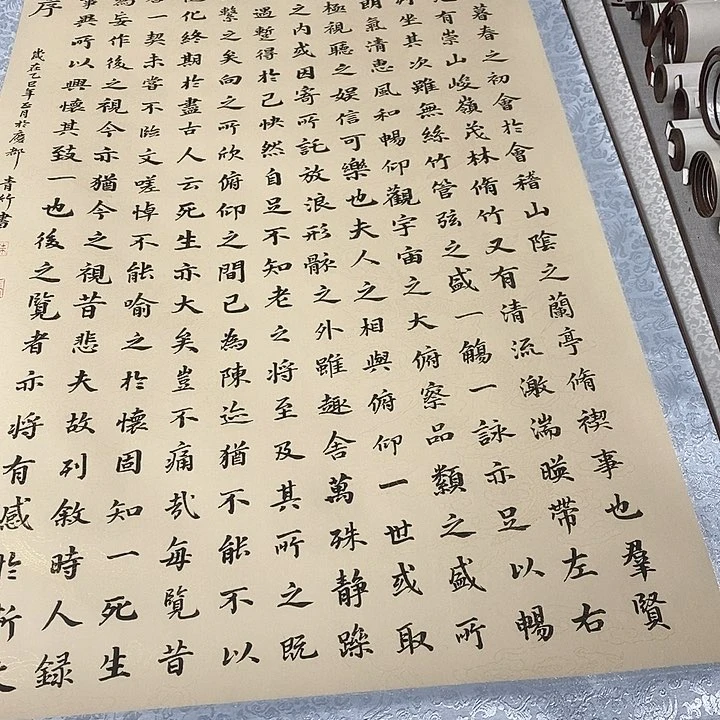 暮春之初會於會稽山陰之蘭亭脩禊事也羣賢
有崇山峻嶺茂林脩竹又有清流激湍暎帶左右
坐其次雖無絲竹管弦之盛一觴一詠亦足以暢
朗氣清惠風和暢仰觀宇宙之大俯察品類之盛所
極視聽之娛信可樂也夫人之相與俯仰一世或取
之內或因寄所託放浪形骸之外雖趣舍萬殊静躁
遇蹔得於己快然自足不知老之將至及其所之既
繫之矣向之所欣俯仰之間已為陳迹猶不能不以
化終期於盡古人云死生亦大矣豈不痛哉每覽昔
一契未嘗不臨文嗟悼不能喻之於懷固知一死生
為妄作後之視今亦猶今之視昔悲夫故列敘時人錄
事異所以興懷其致一也後之覽者亦將有感於斯文
序
歲在乙巳年五月於廣都 青竹書